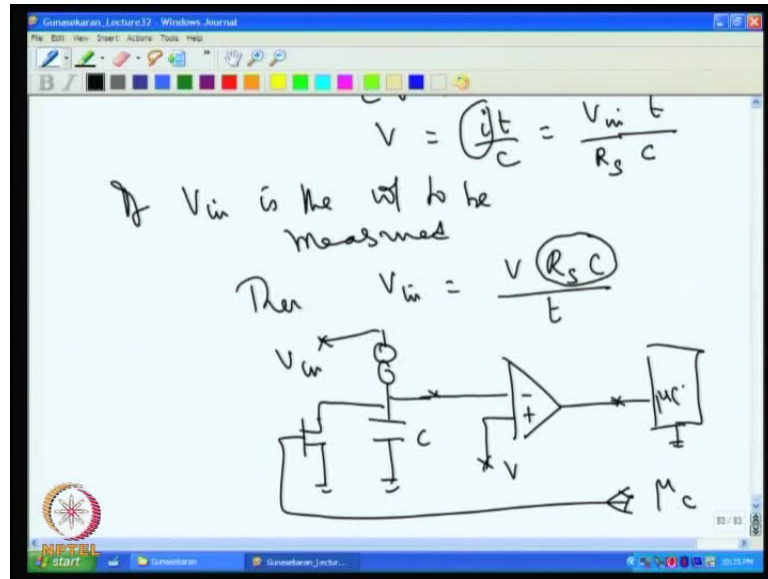 Gunasekaran_Lecture32 - Windows Journal
File Edit View Insert Actions Tools Help
B I
V = it/C = Vin t / Rs C
If Vin is the vol to be
measured
Then Vin = V Rs C / t
Vin
-
+
μc
C
V
μc
83 / 83
NPTEL
start Gunasekaran Gunasekaran_Lectur... 10:25 PM